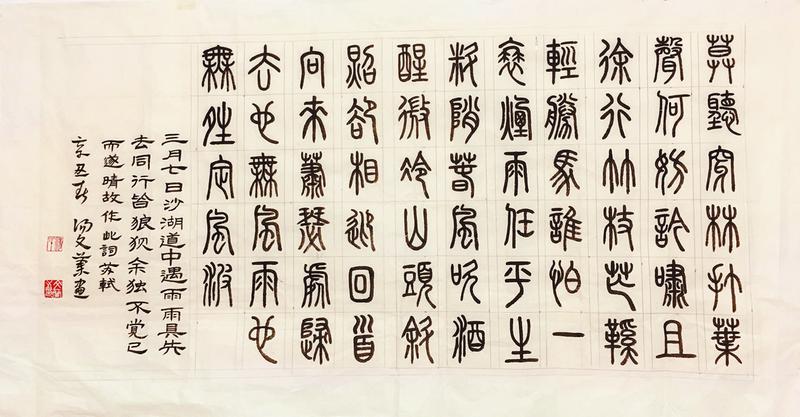 莫聽穿林打葉
聲何妨訡嘯且
徐行竹杖芒鞵
輕勝馬誰怕一
蓑煙雨任平生
料峭春風吹酒
醒微冷山頭斜
照卻相迎回首
向來蕭瑟處歸
去也無風雨也
無晴定風波
三月七日沙湖道中遇雨雨具先
去同行皆狼狈余独不覺已
而遂晴故作此詞苏軾
辛丑春 湯文